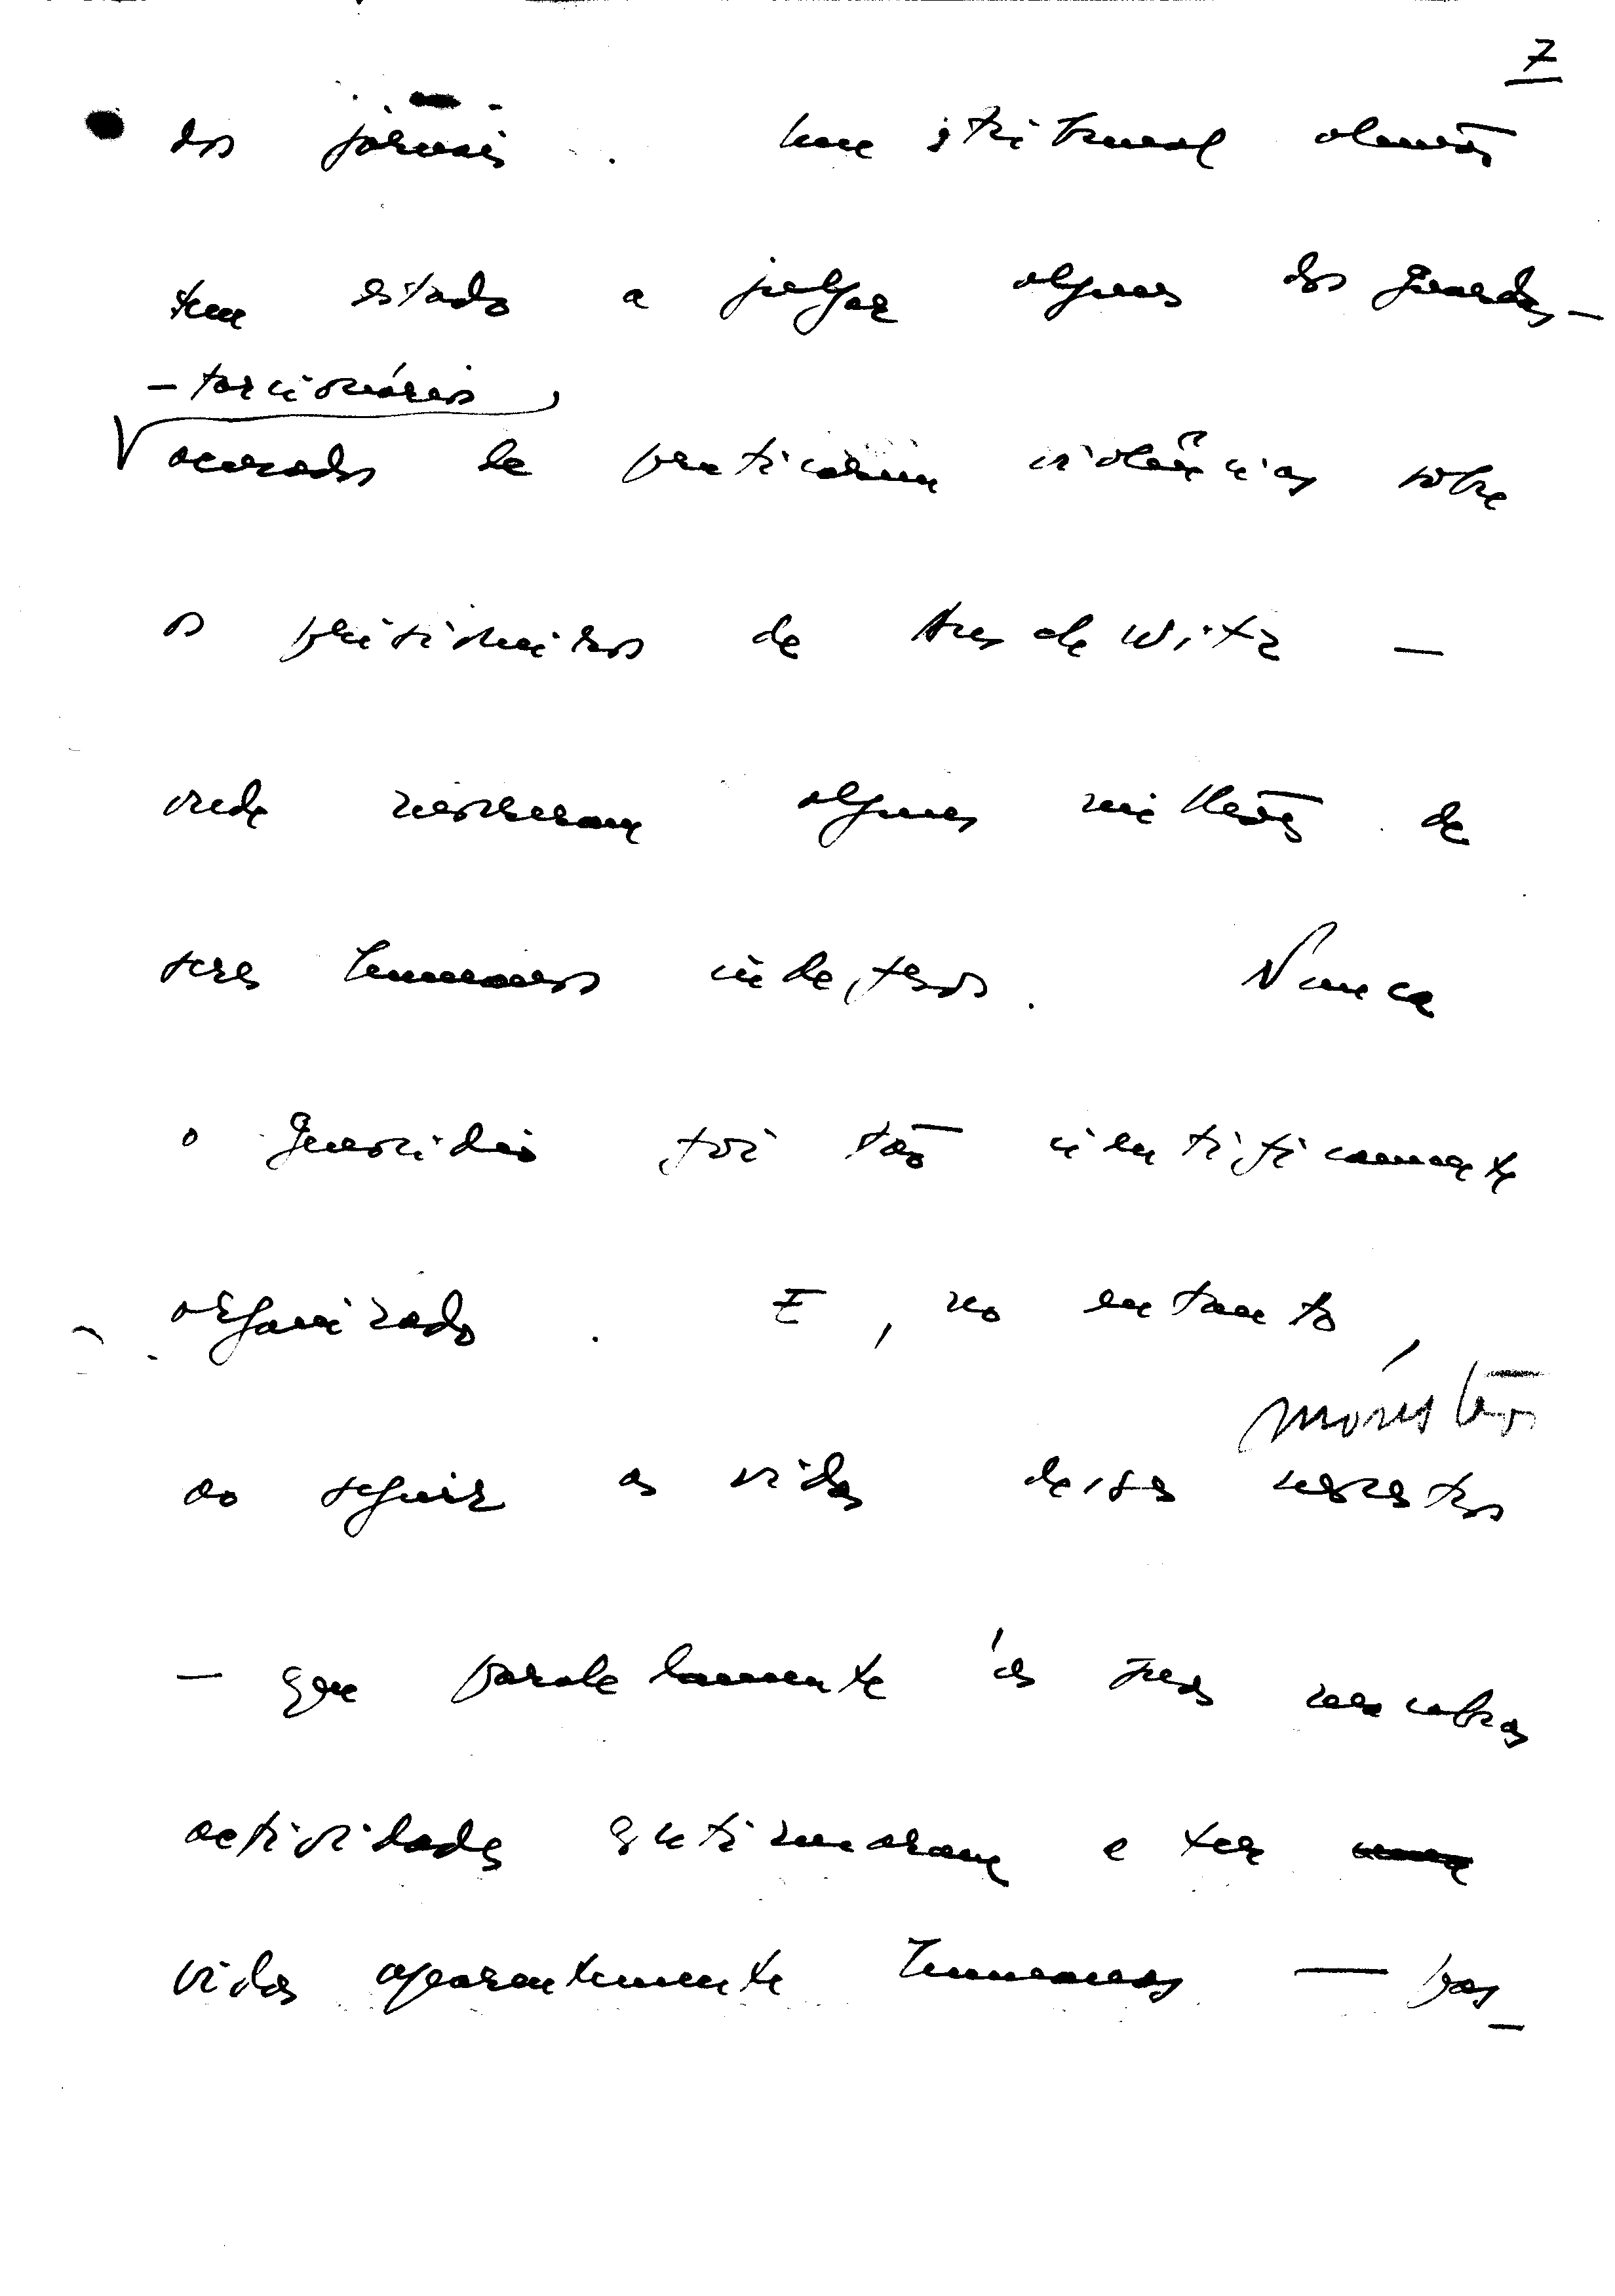 7
dos jornais. Um tribunal alemão
tem estado a julgar alguns dos guardas-
-torcionários
acusados de praticarem violências sobre
os prisioneiros de Auschwitz —
onde morreram alguns milhões de
seres humanos indefesos. Nunca
o genocídio foi tão cientificamente
organizado. E, no entanto,
ao seguir as vidas desses monstros
— que paralelamente às suas macabras
actividades continuaram a ter
vidas aparentemente humanas — pas-